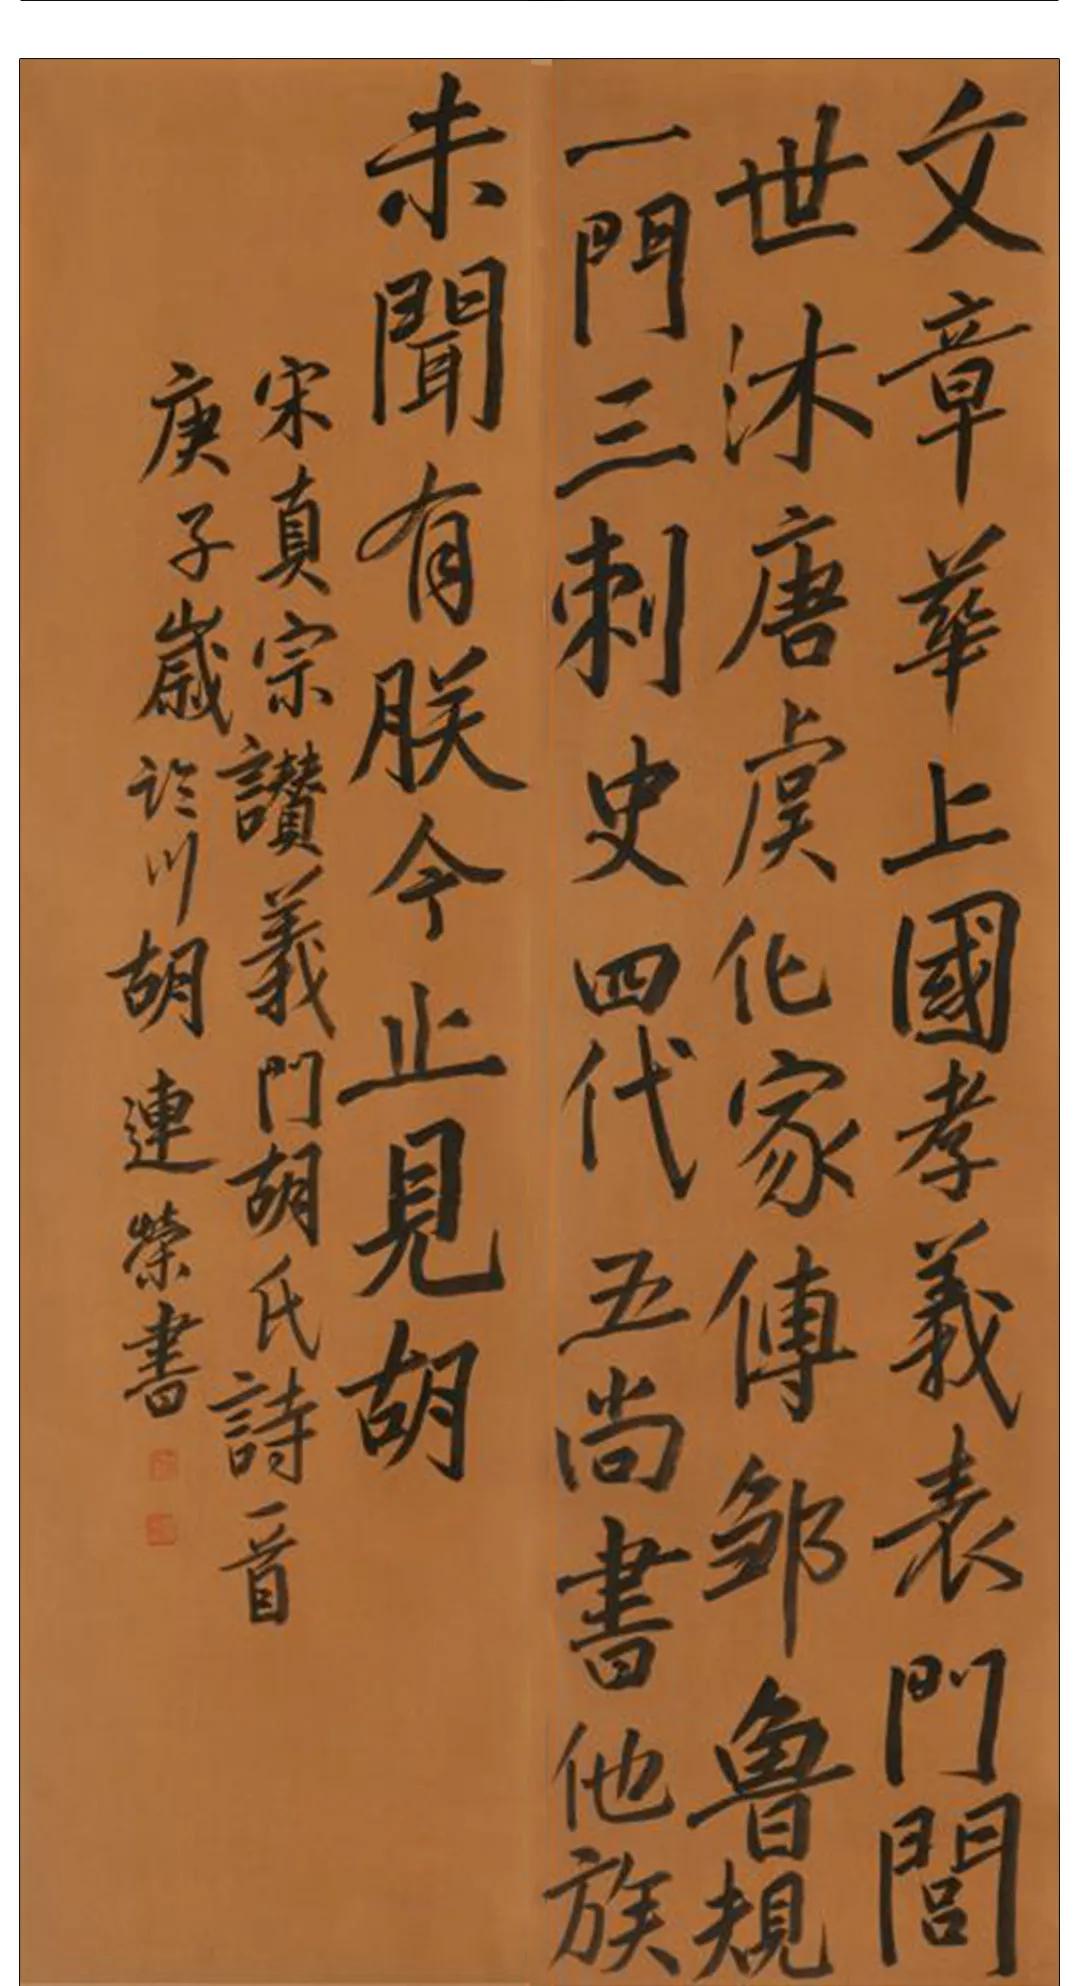 文章華上國孝義表門閭
世沐唐虞化家傳鄒魯規
一門三刺史四代五尚書他族
未聞有朕今止見胡
宋真宗讃義門胡氏詩一首
庚子歲於川胡連榮書